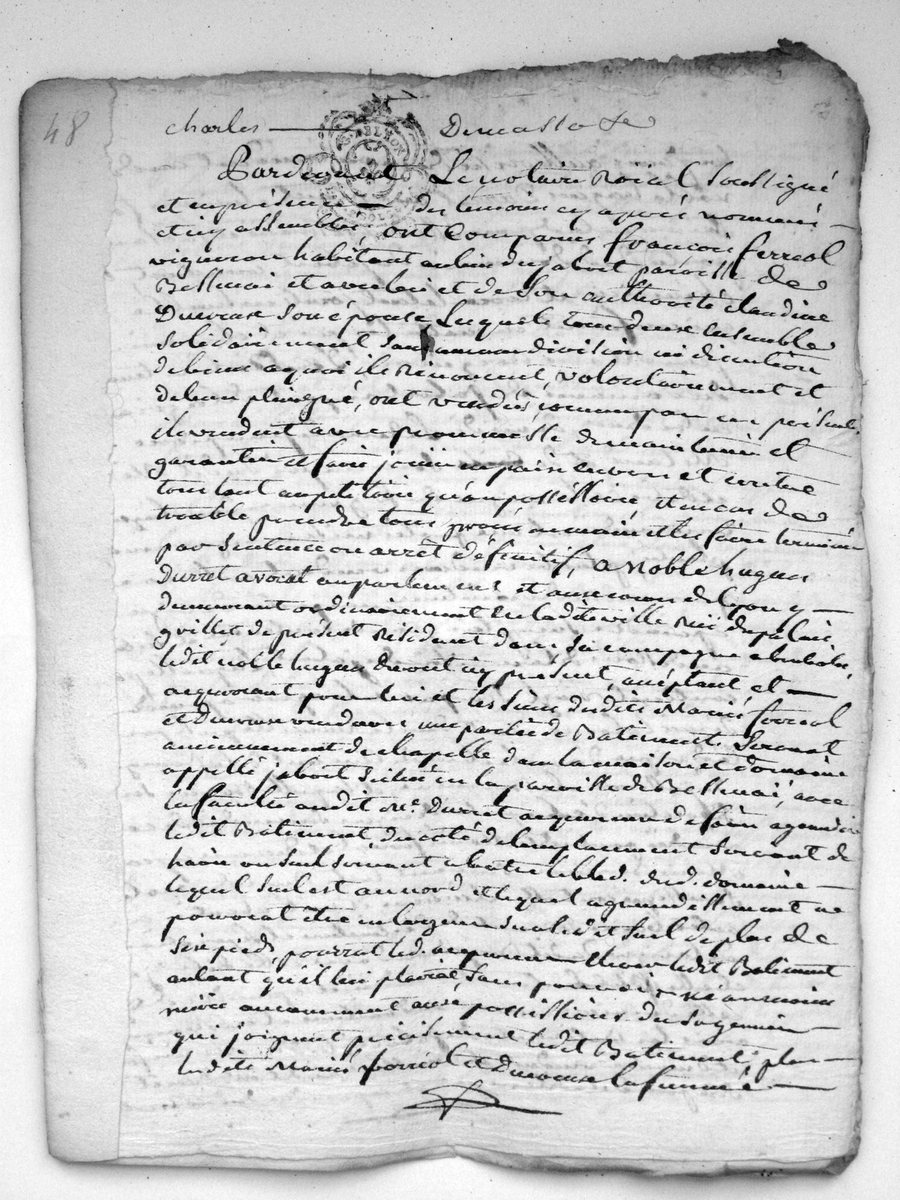 48
charles Demasso &e
Pardevant Le notaire Roial soussigné
et en présence des temoins cy après nommés
et cy assemblés, ont Comparus françois ferreol
vigneron habitant au lieu du jaboit paroisse de
Bellmai et avec lui et de son authorité claudine
son épouse, Lesquels tous deux ensemble
solidairement sans aucune division ni discution
de biens a quoi ils Renoncent, volontairement et
de leur plein gré, ont vendus, comme par ces présentes
ils vendent avec promesse de maintenir et
garantir et faire jouir en paix envers et contre
tous tant au pétitoire qu'au possessoire, et en cas de
trouble prendre tous procès en main et les faire terminer
par sentence ou arrêt définitif, a Noble hugues
Durret avocat au parlement et aux cours de Lyon y
demeurant ordinairement en ladite ville Rue du palais
de présent Résident dans sa campagne
ledit noble hugues Durret cy présent, acceptant et
acquerant pour lui et les siens desdits Mariés ferreol
et une partie de Batiments servant
anciennement de chapelle dans la maison et domaine
appellé jaboit scitué en la paroisse de Bellmai, avec
la faculté audit Me. Durret acquereur de faire agrandir
ledit Batiment du coté de l'emplacement servant de
haire ou suel servant a battre les bled. dud. domaine
lequel suel est au nord et lequel agrandissement ne
pourrat être en largeur sur ledit suel de plus de
six pieds, pourrat led. acquereur élever ledit Batiment
autant qu'il lui plairat, sans pouvoir néanmoins
nuire aucunement aux possessions du sr
qui joignent précisément ledit Batiment, plus
lesdits Mariés ferréol et la femme